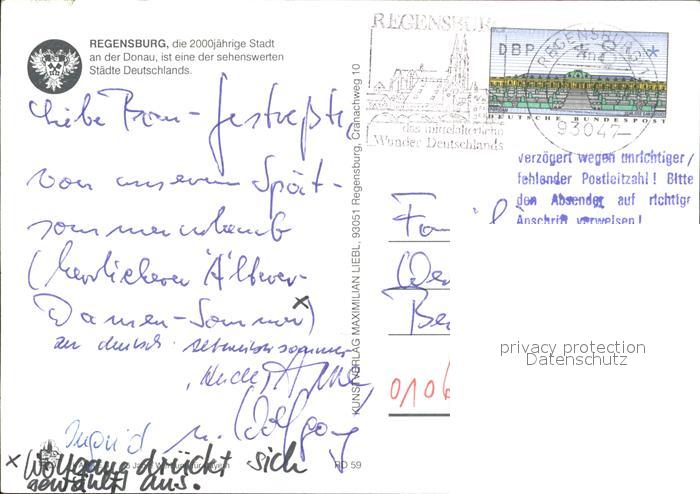 REGENSBURG, die 2000jährige Stadt
an der Donau, ist eine der sehenswerten
Städte Deutschlands.
Liebe
von unserem Spät-
sommerurlaub
(herrlicher Altwei-
Damen-Sommer) x
zu deutsch:
Ingrid u. Wolfgang
x Wolfgang drückt sich
gewählt aus.
RD 59
KUNSTVERLAG MAXIMILIAN LIEBL, 93051 Regensburg, Cranachweg 10
REGENSBURG
das mittelalterliche
Wunder Deutschlands
REGENSBURG 1
93047
DBP
DEUTSCHE BUNDESPOST
verzögert wegen unrichtiger/
fehlender Postleitzahl! Bitte
den Absender auf richtige
Anschrift verweisen!
Fam
Be
0106
privacy protection
Datenschutz